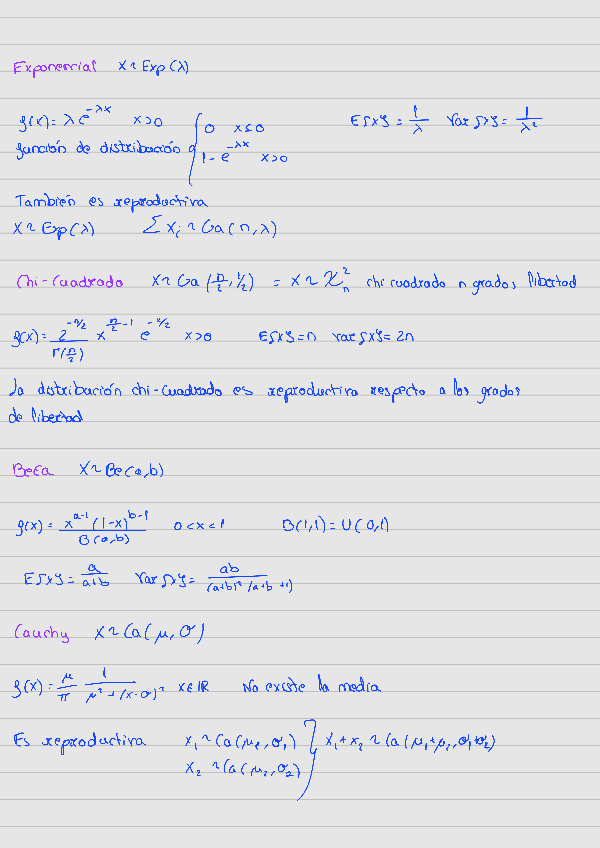 Exponencial X~Exp(λ)
f(x) = λe^{-λx} x>0 { 0 x≤0 E{X} = 1/λ Var{X} = 1/λ²
función de distribución { 1-e^{-λx} x>0
También es reproductiva
X~Exp(λ) ∑Xᵢ ~ Ga(n,λ)
Chi-Cuadrado X~Ga(n/2, 1/2) = X~χ²ₙ chi cuadrado n grados libertad
f(x) = 2^{-n/2}/Γ(n/2) x^{n/2-1} e^{-x/2} x>0 E{X}=n Var{X}=2n
La distribución chi-cuadrado es reproductiva respecto a los grados
de libertad
Beta X~Be(a,b)
f(x) = x^{a-1}(1-x)^{b-1}/B(a,b) 0<x<1 B(1,1)=U(0,1)
E{X} = a/(a+b) Var{X} = ab/((a+b)²(a+b+1))
Cauchy X~Ca(μ,σ)
f(x) = μ/π 1/(μ²+(x-σ)²) x∈ℝ No existe la media
Es reproductiva X₁~Ca(μ₁,σ₁) } X₁+X₂~Ca(μ₁+μ₂,σ₁+σ₂)
X₂~Ca(μ₂,σ₂)